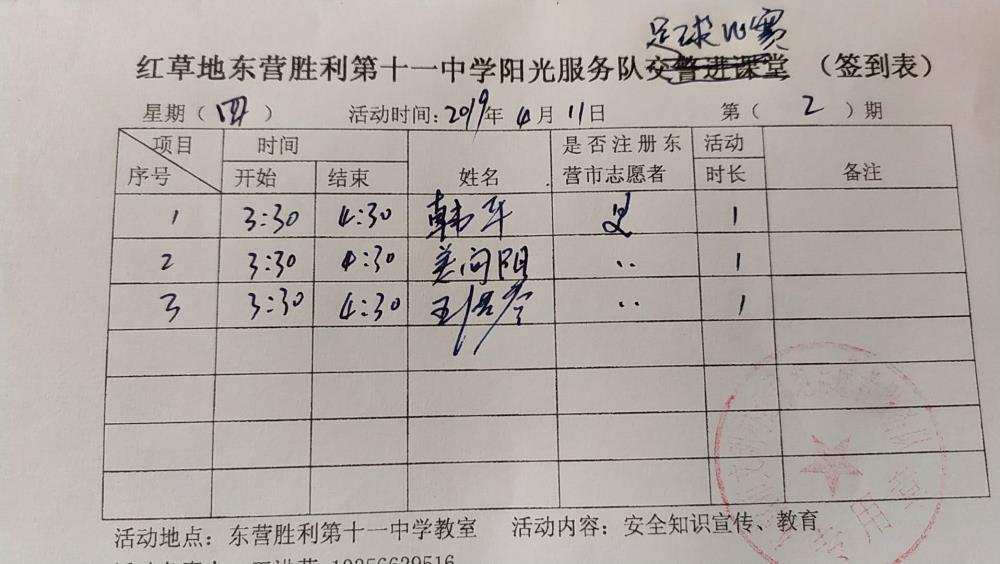 足球比赛
红草地东营胜利第十一中学阳光服务队交警进课堂 （签到表）
星期（四） 活动时间：2019年4月11日 第（2）期
项目 时间 姓名 是否注册东 活动 备注
序号 开始 结束 营市志愿者 时长
1 3:30 4:30 韩军 是 1
2 3:30 4:30 姜向阳 〃 1
3 3:30 4:30 王 〃 1
活动地点：东营胜利第十一中学教室 活动内容：安全知识宣传、教育